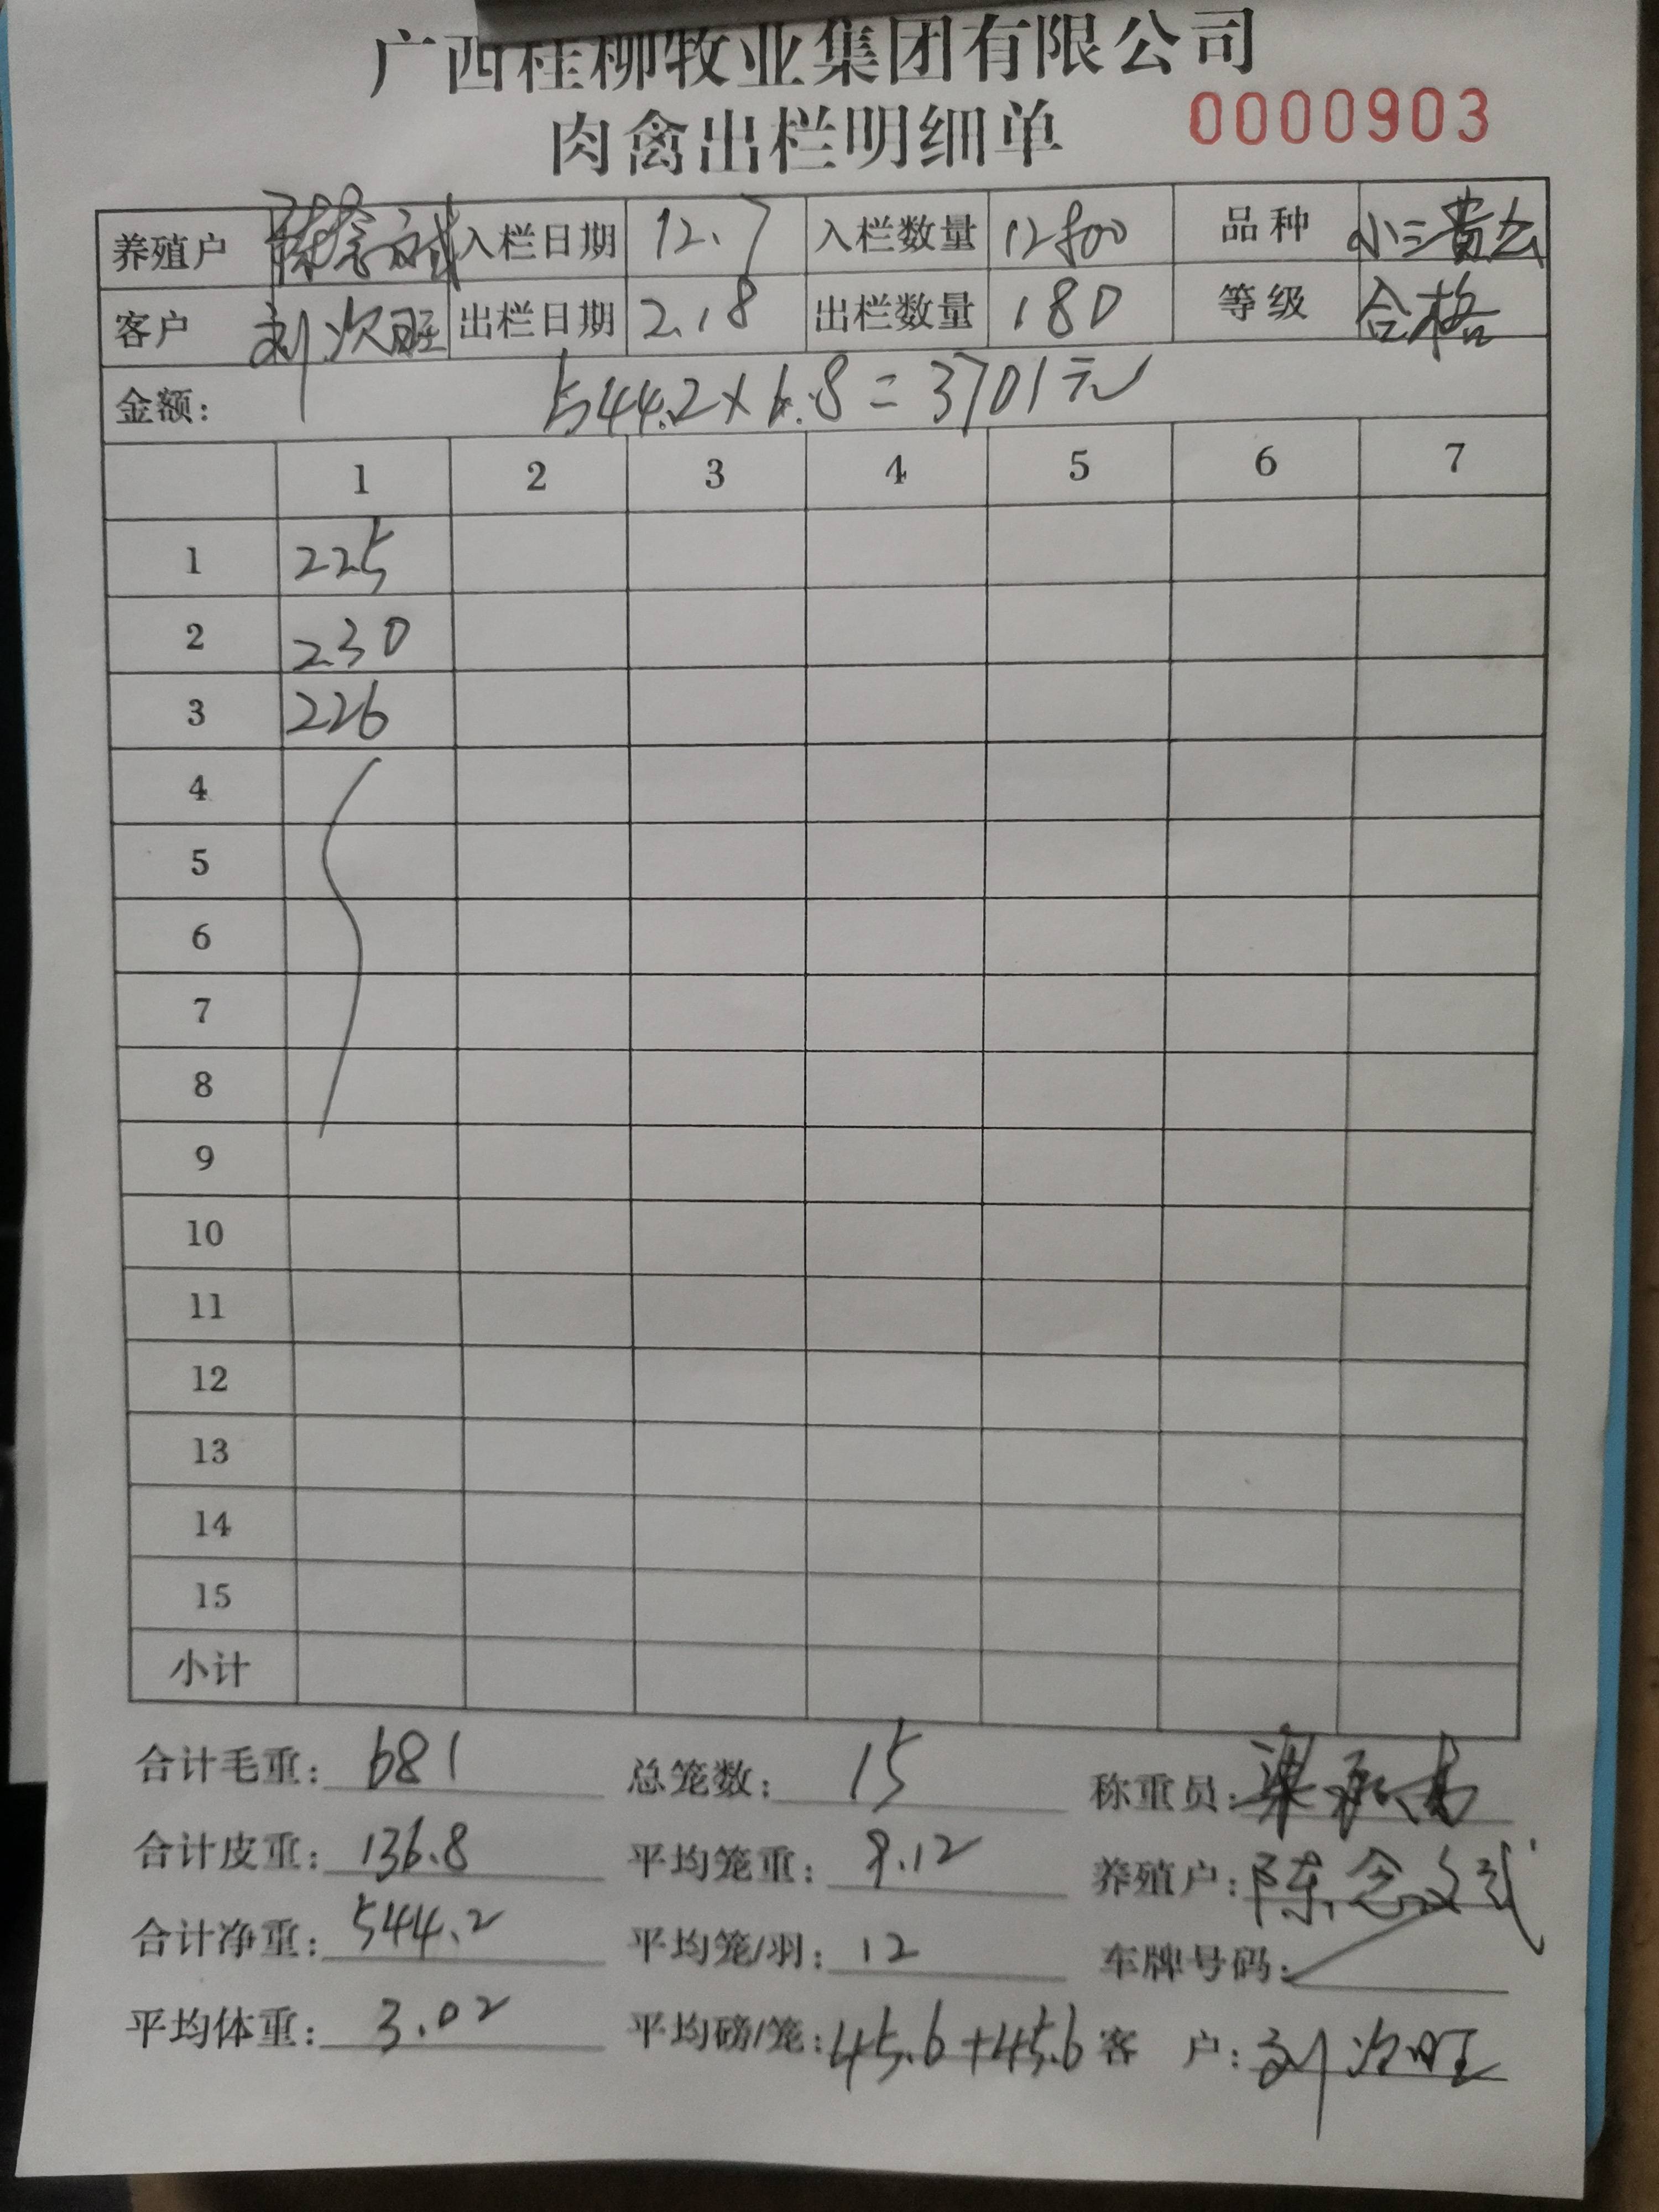 广西桂柳牧业集团有限公司
肉禽出栏明细单 0000903
养殖户 陈念斌 入栏日期 12.7 入栏数量 12800 品种 小三黄公
客户 刘次旺 出栏日期 2.18 出栏数量 180 等级 合格
金额: 544.2×6.8=3701元
1 2 3 4 5 6 7
1 225
2 230
3 226
4
5
6
7
8
9
10
11
12
13
14
15
小计
合计毛重: 681 总笼数: 15 称重员: 梁
合计皮重: 136.8 平均笼重: 9.12 养殖户: 陈念斌
合计净重: 544.2 平均笼/羽: 12 车牌号码:
平均体重: 3.02 平均磅/笼: 45.6+45.6 客 户: 刘次旺